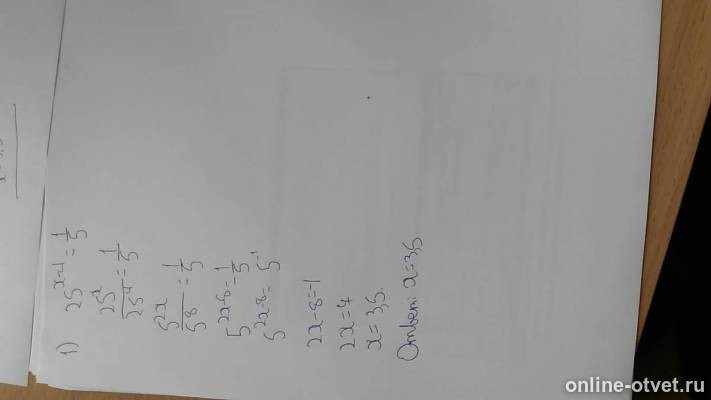 1) 25^(x-4) = 1/5
25^x/25^4 = 1/5
5^(2x)/5^8 = 1/5
5^(2x-8) = 1/5
5^(2x-8) = 5^(-1)
2x-8=-1
2x=7
x=3,5.
Ответ: x=3,5
online-otvet.ru